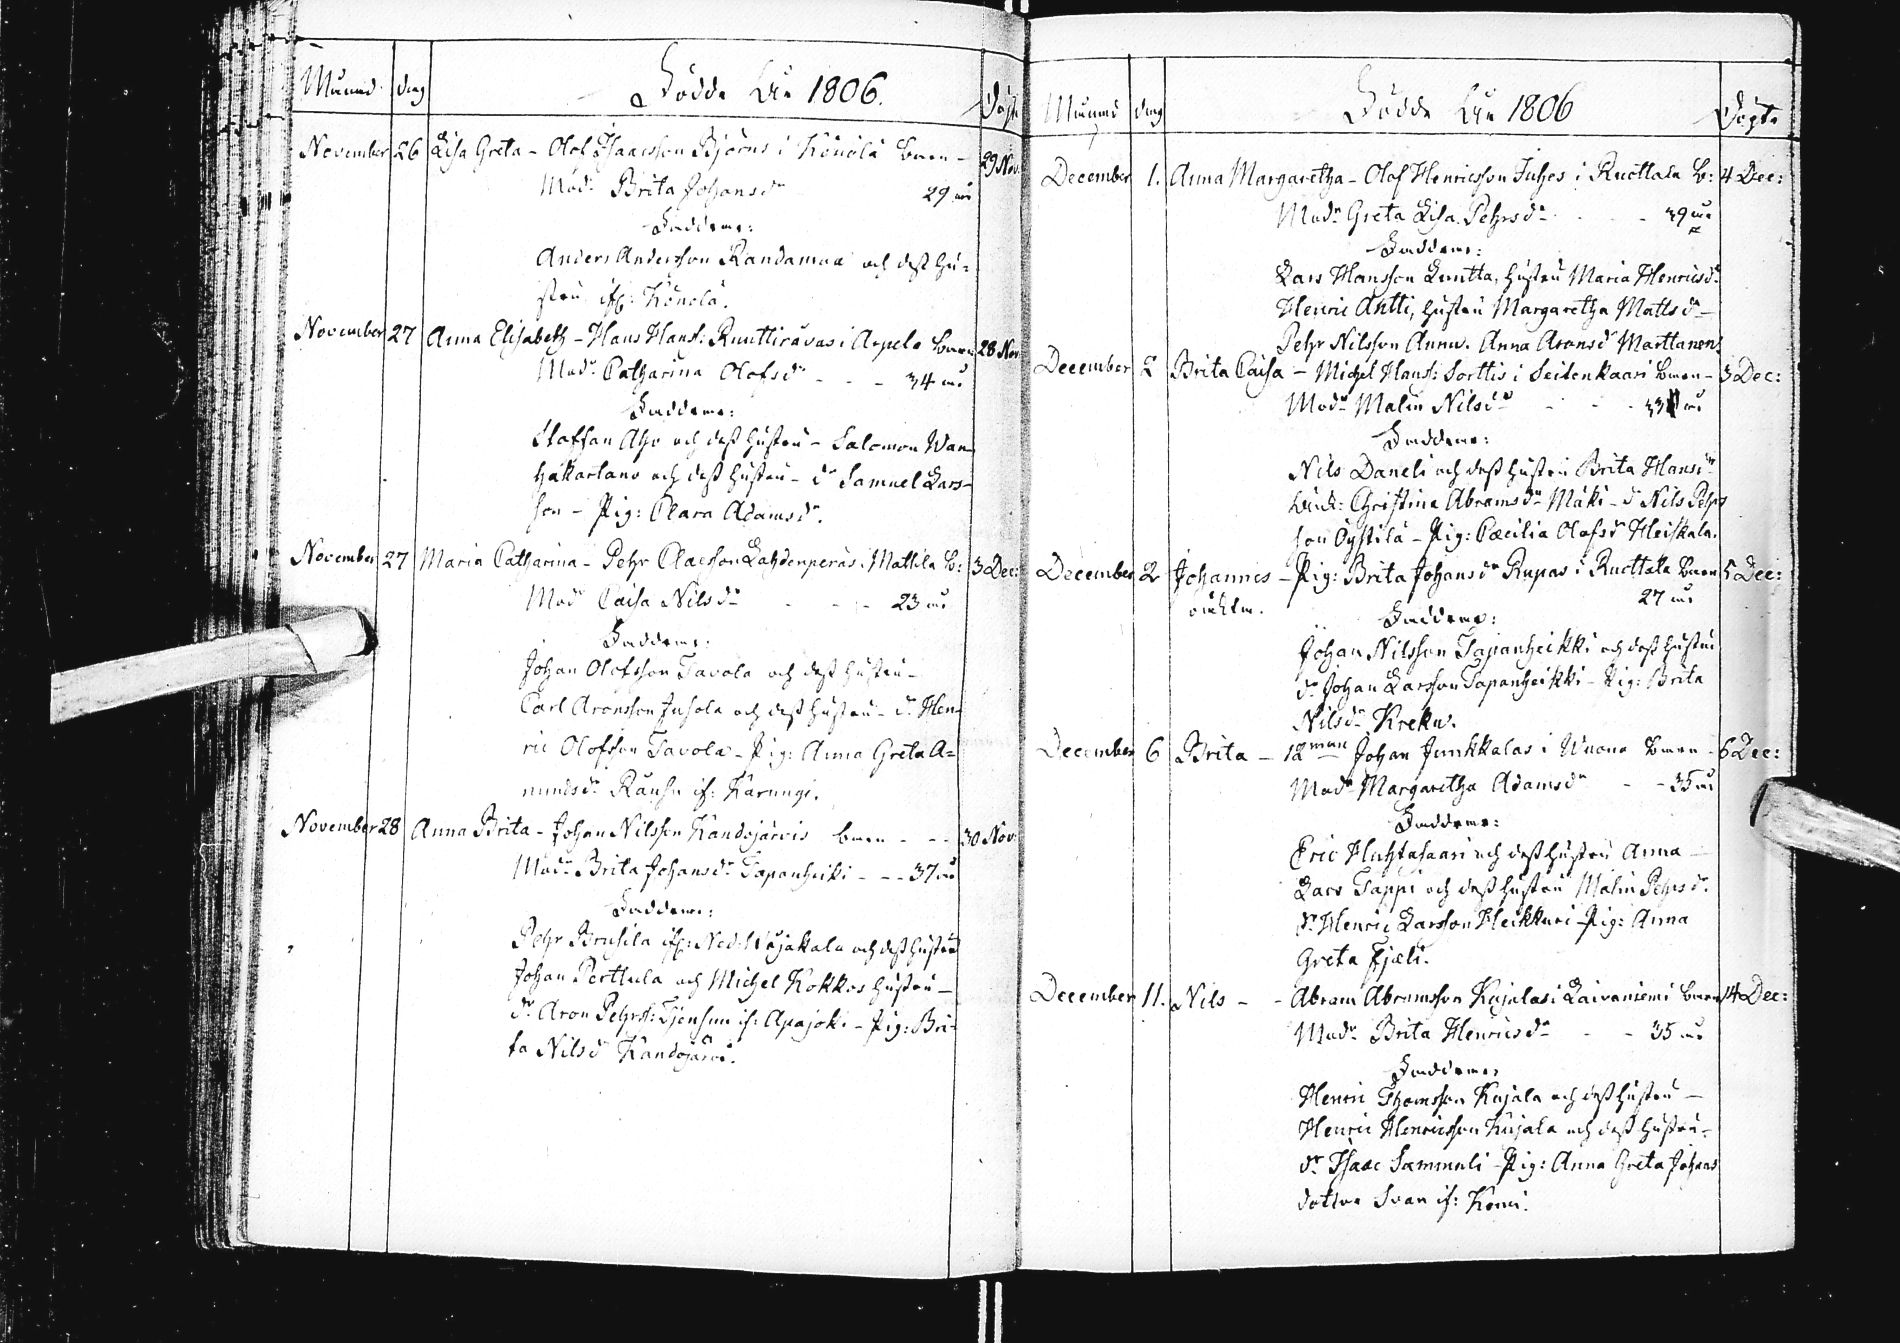 Månad dag Födde År 1806. Döpte
November 26 Lisa Greta - Olof Isaacsson Björns i Könölä barn - 29 Nov:
Modr Brita Johansdr 29 år
Faddrar:
Anders Andersson Randamaa och dess hu=
stru if: Könölä.
November 27 Anna Elisabeth - Hans Hanss: Runttiravas i Arpela barn 28 Nov
Modr Catharina Olofsdr - - - 34 år
Faddrar:
Staffan Aho och dess hustru - Salomon Wan-
hakartano och dess hustru - dr Samuel Lars-
son - Pig: Clara Adamsdr.
November 27 Maria Catharina - Pehr Claesson Lahdenperäs i Mattila b: 3 Dec:
Modr Caisa Nilsdr - - - 23 år
Faddrar:
Johan Olofsson Tavola och dess hustru -
Carl Aronsson Juhola och dess hustru - dr Hen-
ric Olofsson Tavola - Pig: Anna Greta A=
mundsdr Rauhu if: Karungi.
November 28 Anna Brita - Johan Nilsson Kandojärvis barn - - - 30 Nov:
Modr Brita Johansdr Tapanheiki - - - 37 år
Faddrar:
Pehr Bruhila if: Ned: Wojakala och dess hustru
Johan Perttula och Michel Kokkos hustru -
dr Aron Pehrss: Tjenhuu if: Apajoki - Pig: Bri-
ta Nilsdr Kandojärvi.
Månad dag Födde År 1806 Döpte
December 1. Anna Margaretha - Olof Henricsson Juhes i Ruottala b: 4 Dec:
Modr Greta Lisa Pehrsdr - - - 39 år
Faddrar:
Lars Hansson Luutta, hustru Maria Henricsdr.
Henric Antti, hustru Margaretha Mattsdr -
Pehr Nilsson Annu. Anna Aronsdr Marttanen.
December 2 Brita Caisa - Michel Hanss: Sorttis i Seitenkaari barn - 3 Dec:
Modr Malin Nilsdr - - - 33 år
Faddrar:
Nils Daneli och dess hustru Brita Hansdr
Enck: Christina Abramsdr Mäki - dr Nils Pehrs
son Öystilä - Pig: Cæcilia Olofsdr Heiskala.
December 2 Johannes - Pig: Brita Johansdr Rupas i Ruottala barn 5 Dec:
oäckta. 27 år
Faddrar:
Johan Nilsson Tapanheikki och dess hustru
dr Johan Larsson Tapanheikki - Pig: Brita
Nilsdr Kreku.
December 6 Brita - 12man Johan Junkkalas i Wuono barn - 6 Dec:
Modr Margaretha Adamsdr - - 35 år
Faddrar:
Eric Huhtasaari och dess hustru Anna -
Lars Tappi och dess hustru Malin Pehrsdr.
dr Henric Larsson Heikkuri - Pig: Anna
Greta Fjäli.
December 11. Nils - - Abram Abramsson Kujalas i Laivaniemi barn 14 Dec:
Modr Brita Henricsdr - - 35 år
Faddrar
Henric Thomsson Kujala och dess hustru -
Henric Henricsson Kujala och dess hustru -
dr Isaac Sammuli - Pig: Anna Greta Johans
dotter Svan if: Kemi.